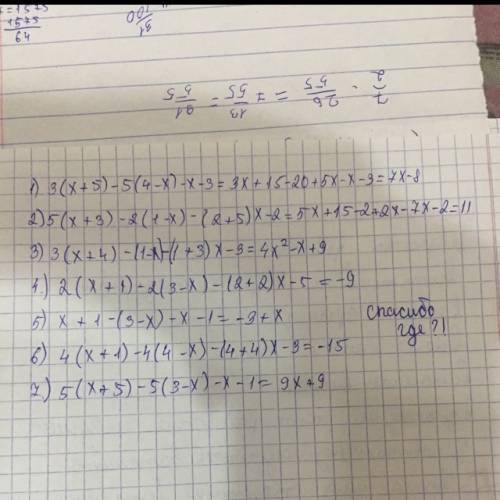 1575
64
91
100
7/2 · 26/55 = 7 13/55 = 91/55
1) 3(x+5)-5(4-x)-x-3=3x+15-20+5x-x-3=7x-8
2) 5(x+3)-2(1-x)-(2+5)x-2=5x+15-2+2x-7x-2=11
3) 3(x+4)-(1-x)-(1+3)x-3=4x²-x+9
4) 2(x+1)-2(3-x)-(2+2)x-5=-9
5) x+1-(3-x)-x-1=-3+x
спасибо
где?!
6) 4(x+1)-4(4-x)-(4+4)x-3=-15
7) 5(x+5)-5(3-x)-x-1=9x+9